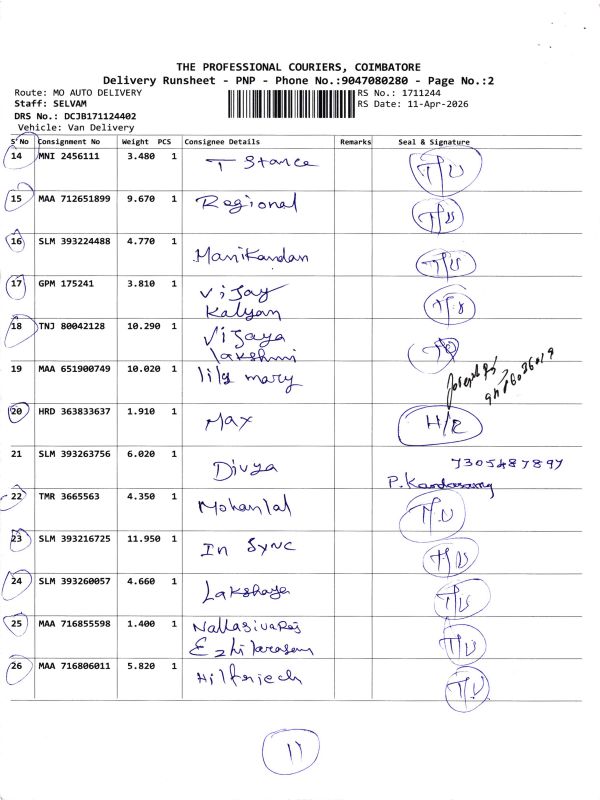 THE PROFESSIONAL COURIERS, COIMBATORE
Delivery Runsheet - PNP - Phone No.:9047080280 - Page No.:2
Route: MO AUTO DELIVERY RS No.: 1711244
Staff: SELVAM RS Date: 11-Apr-2026
DRS No.: DCJB171124402
Vehicle: Van Delivery
S'No Consignment No Weight PCS Consignee Details Remarks Seal & Signature
14 MNI 2456111 3.480 1 T Stance T/U
15 MAA 712651899 9.670 1 Regional T/U
16 SLM 393224488 4.770 1 Manikandan T/U
17 GPM 175241 3.810 1 Vijay T/U
Kalyan
18 TNJ 80042128 10.290 1 Vijaya
lakshmi
19 MAA 651900749 10.020 1 lily mary
20 HRD 363833637 1.910 1 Max H/R
21 SLM 393263756 6.020 1 Divya 7305487897
P. Kandasamy
22 TMR 3665563 4.350 1 Mohanlal T.U
23 SLM 393216725 11.950 1 In Sync T/U
24 SLM 393260057 4.660 1 Lakshaya T/U
25 MAA 716855598 1.400 1 Nallasivaraj T/U
Ezhilarasan
26 MAA 716806011 5.820 1 Hilfriech T/U
11